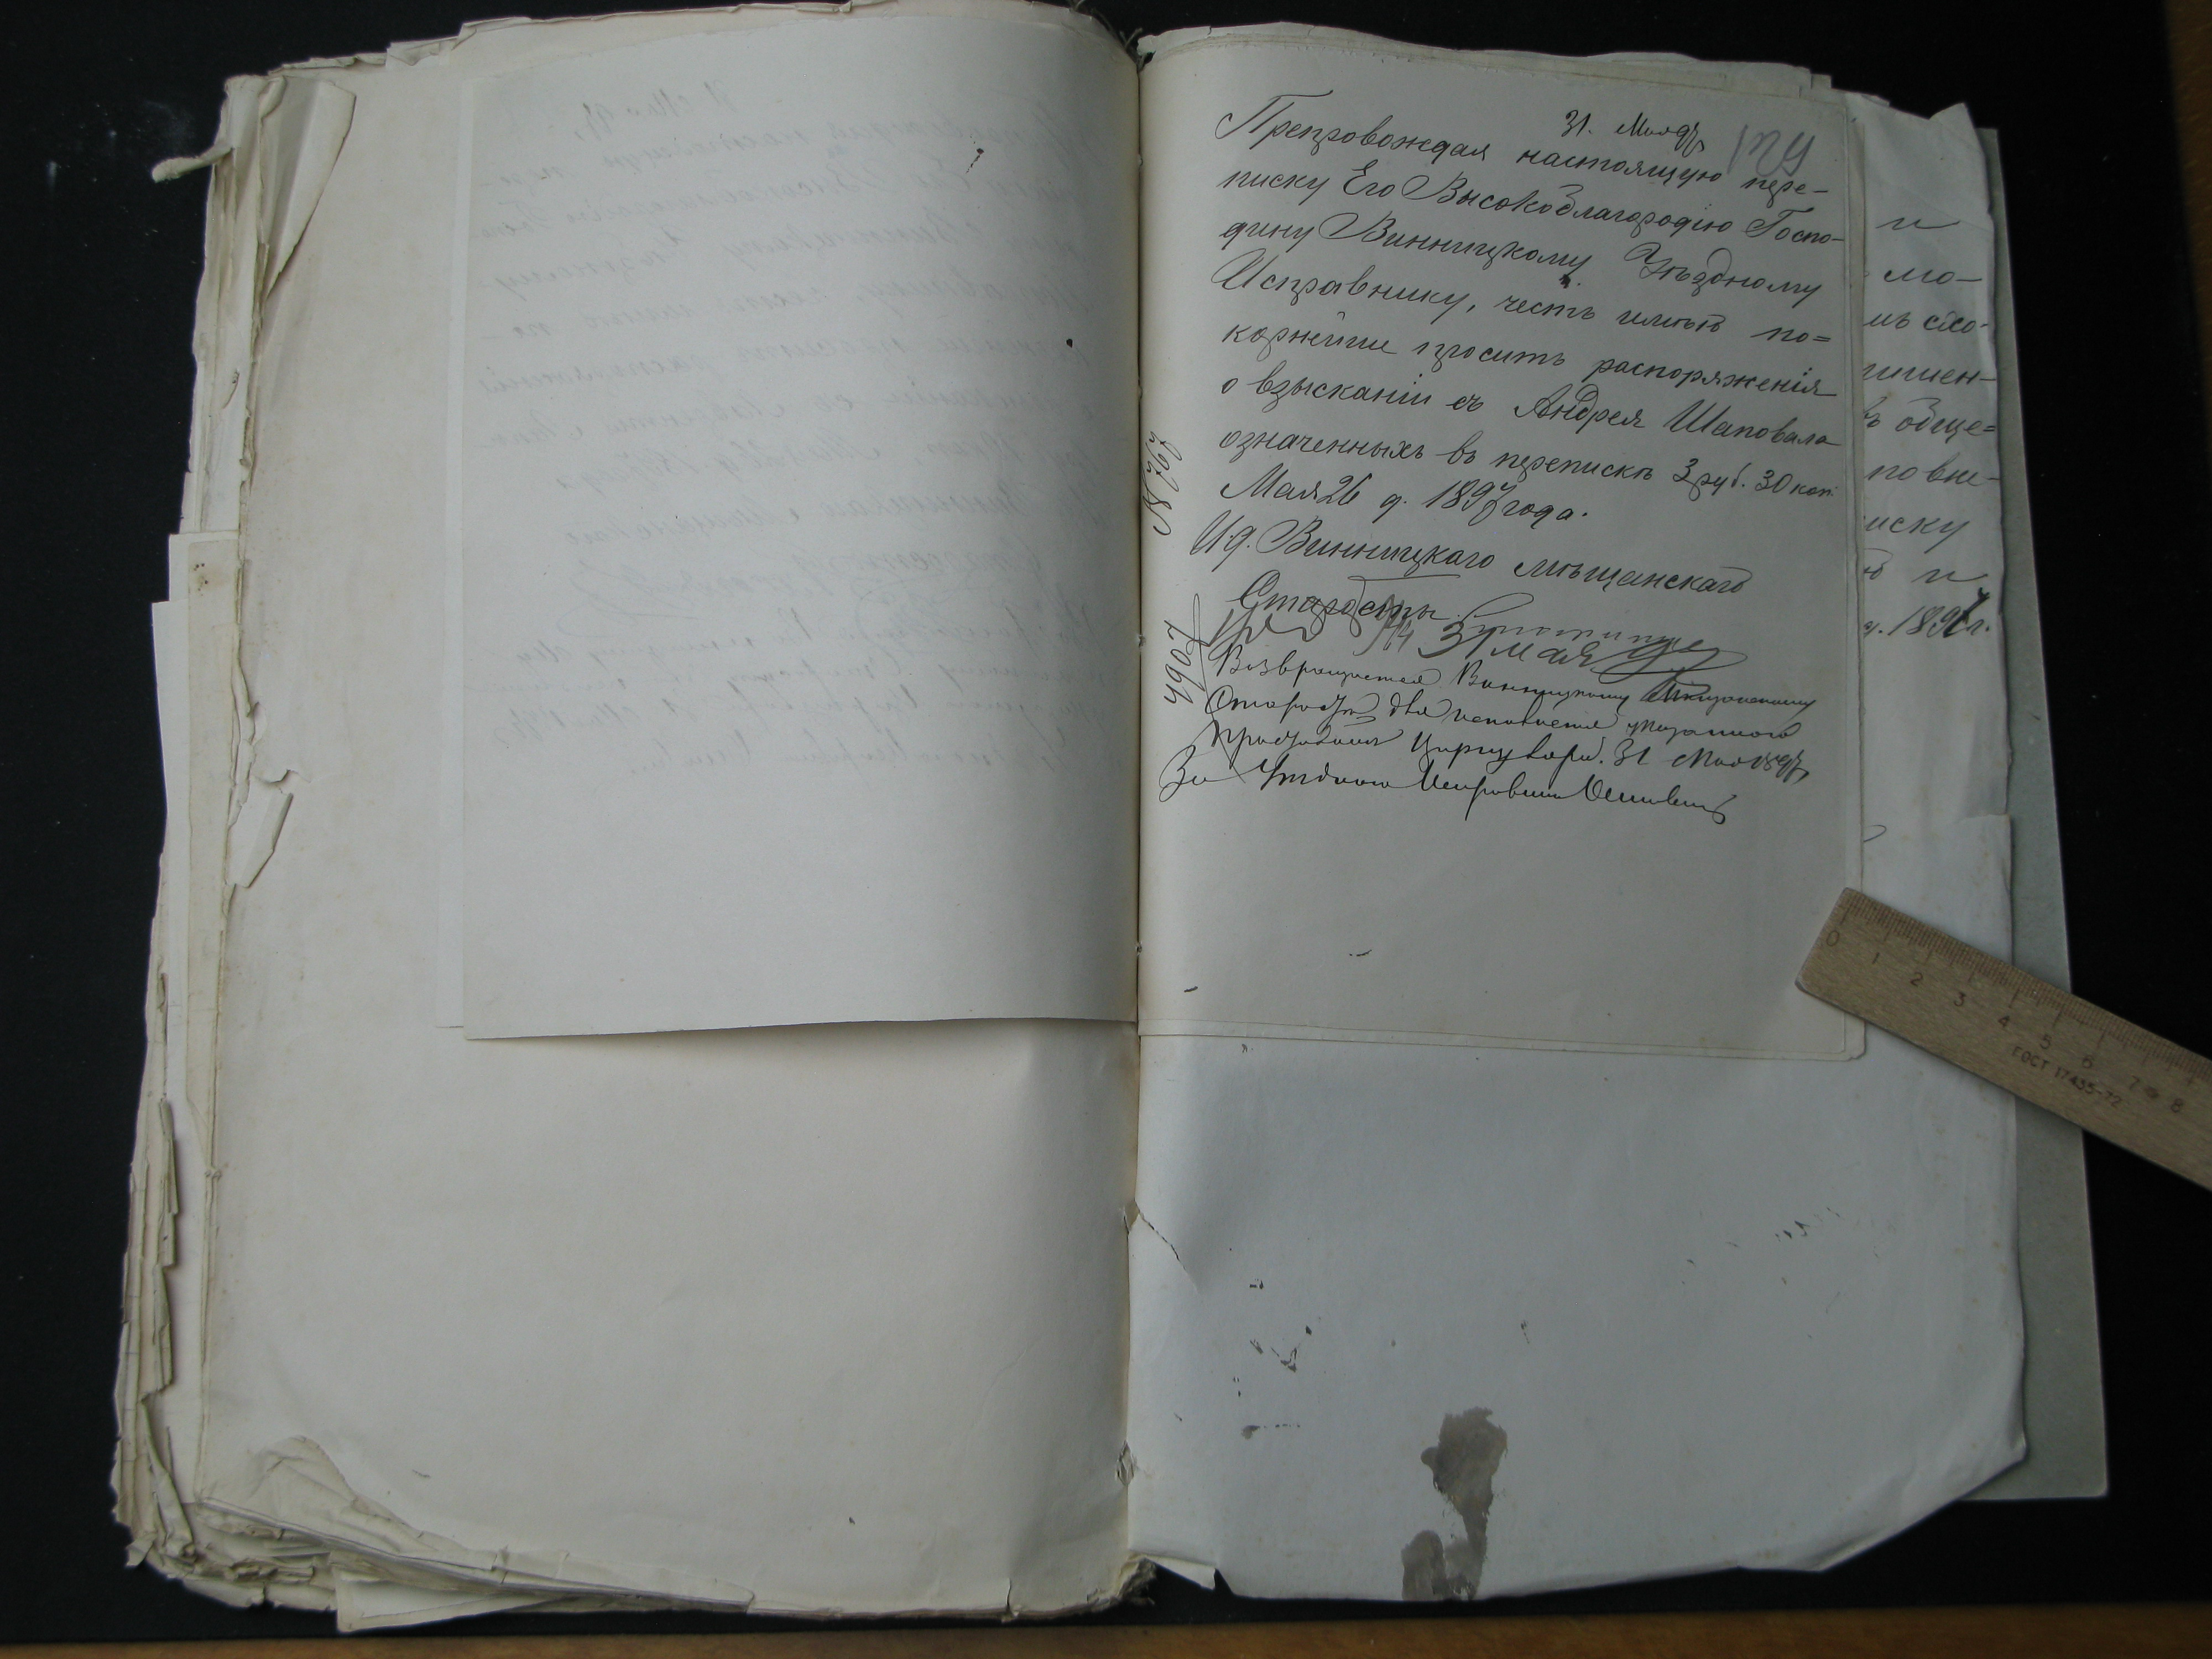 31. Мая 97
129
Препровождая настоящую пере-
писку Его Высокоблагородію Госпо-
дину Винницкому Уѣздному
Исправнику, честь имѣю по=
корнѣйше просить распоряженія
о взысканіи съ Андрея Шаповала
означенныхъ въ перепискѣ 3 руб. 30 коп.
Мая 26 д. 1897 года.
И.д. Винницкаго мѣщанскаго
Старосты
№ 767
31 мая
4907
Возвращается Винницкому Мѣщанскому
Старостѣ для исполненія указаннаго
31 Мая 1897
За Уѣзднаго Исправника
и
мо-
ишен-
обще=
по вне-
иску
и
1897 г.
0 1 2 3 4 5 6 7 8
ГОСТ 17435-72